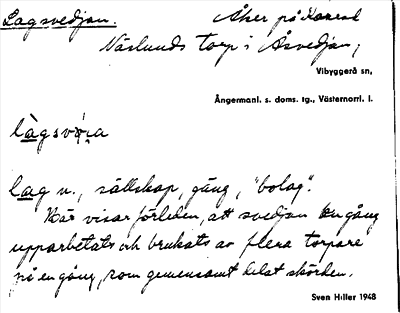 Lagsvedjan.
Åker på Konrad
Näslunds torp i Åsvedjan,
Vibyggerå sn,
Ångermanl. s. doms. tg., Västernorrl. l.
làgsvǿ̜ia
lag n., sällskap, gäng, "bolag".
Här visar förleden, att svedjan en gång
upparbetats och brukats av flera torpare
på en gång, som gemensamt delat skörden.
Sven Hiller 1948